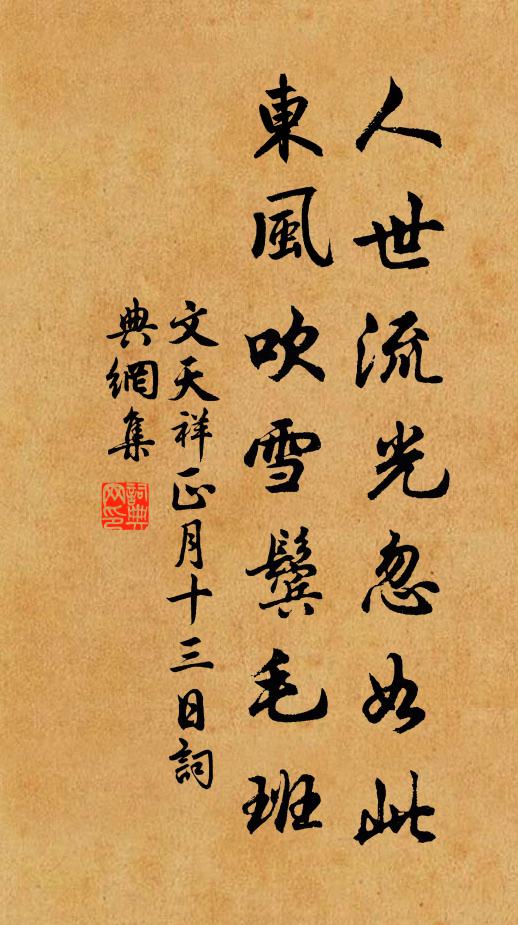 人世流光忽如此
東風吹雪鬓毛班
文天祥正月十三日詞
典網集
詞典網印